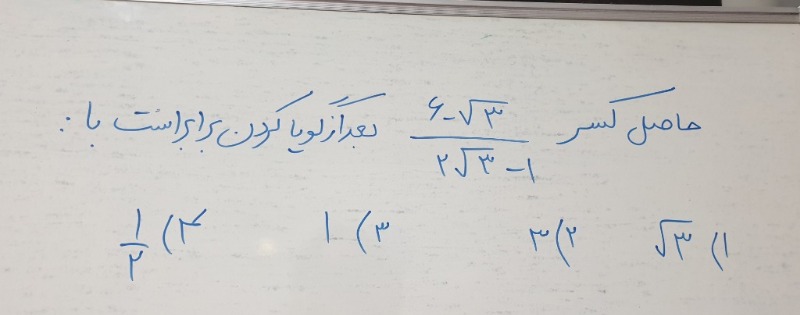 حاصل کسر (۶-√۳)/(۲√۳-۱) بعد از گویا کردن برابر است با:
۱) √۳ ۲) ۳ ۳) ۱ ۴) ۱/۲